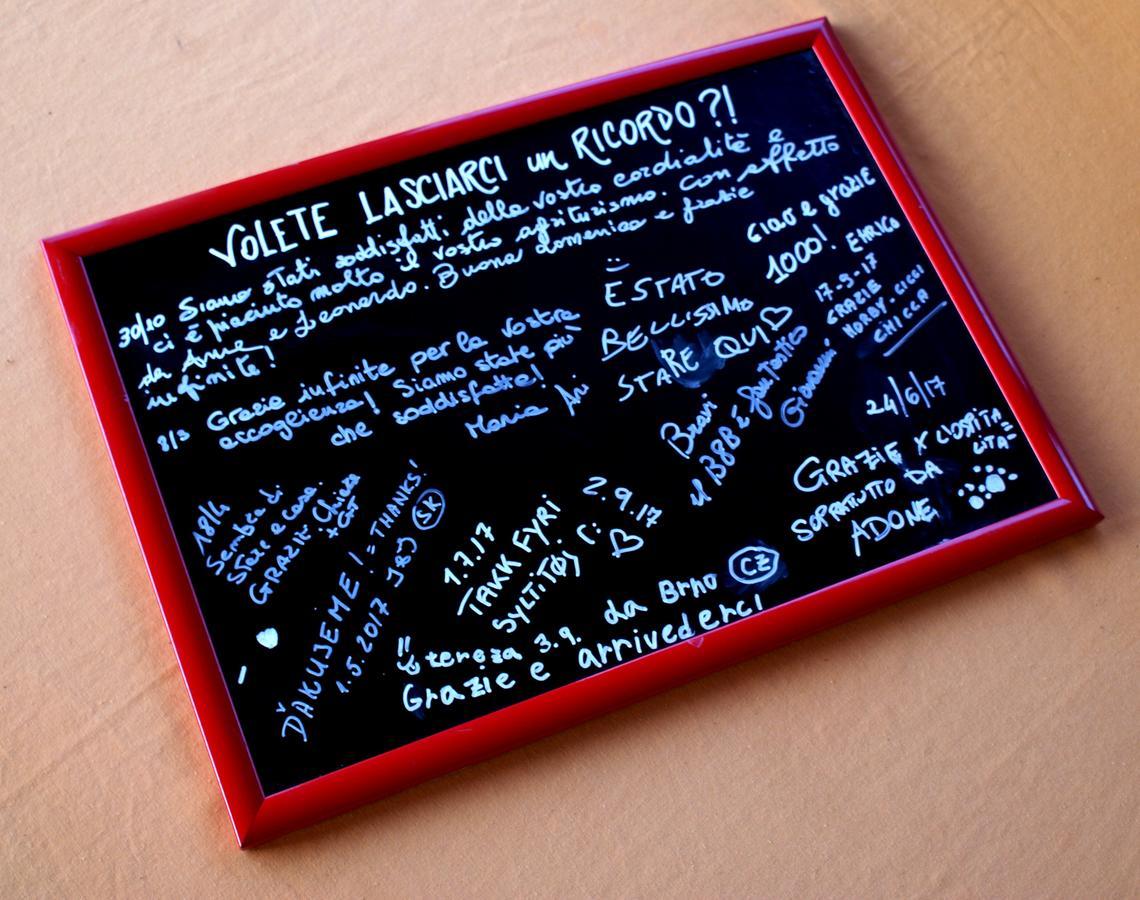 VOLETE LASCIARCI un RICORDO?!
30/10 Siamo stati soddisfatti della vostra cordialità e
ci è piaciuto molto il vostro agriturismo. Con affetto
da Anna e Leonardo. Buona domenica e grazie
infinite!
Ciao e grazie
1000! ENRICO
8/3 Grazie infinite per la vostra
accoglienza! Siamo state più
che soddisfatte!
Maria
È STATO
BELLISSIMO
STARE QUI
17-9-17
GRAZIE
NORBY-GIGGI
CHICCA
Bravi
il B&B è fantastico
Giovanni
24/6/17
GRAZIE X L'OSPITA
LITA=
SOPRATUTTO DA
ADONE
18/4
Sembra di
stare a casa.
GRAZIE Chiara
ĎAKUJEME! = THANKS!
1.5.2017 J&J SK
1.7.17
TAKK FYRI
2.9.17
tereza 3.9. da Brno CZ
Grazie e arrivederci